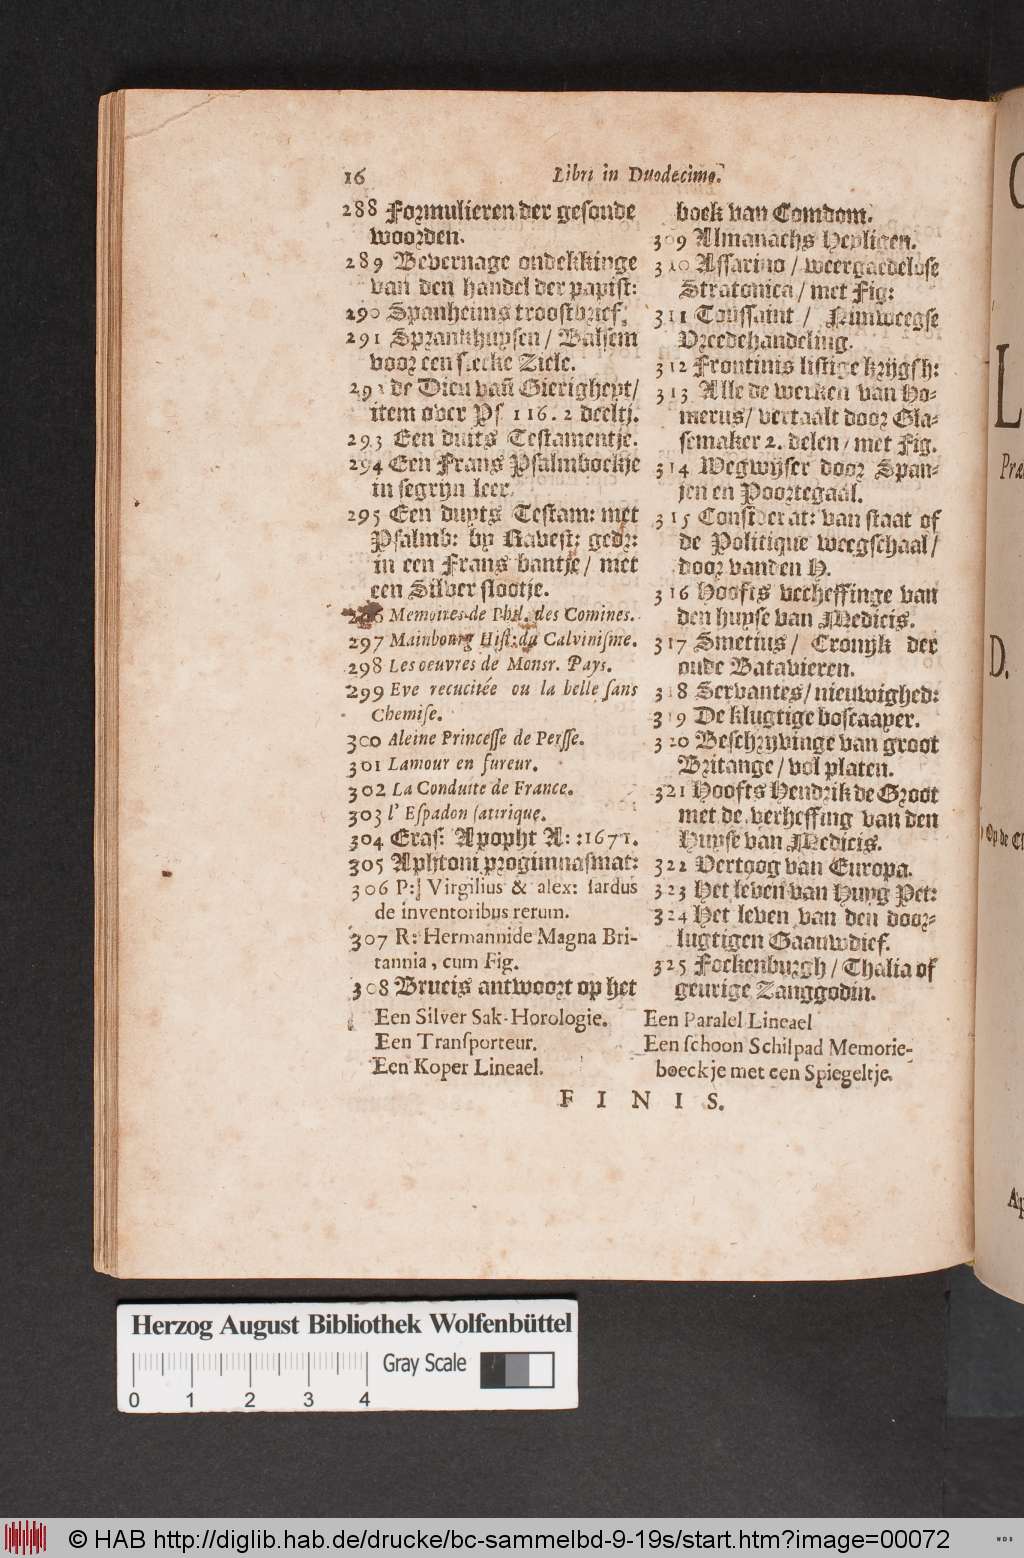 16
Libri in Duodecimo.
288 Formulieren der gesonde
woorden.
289 Bevernage ondekkinge
van den handel der papist:
290 Spanheims troostbrief,
291 Sprankhuysen / Balsem
voor een siecke Ziele.
292 de Dieu vañ Gierigheyt/
item over Ps 116. 2 deeltj.
293 Een duits Testamentje.
294 Een Frans Psalmboekje
in segryn leer.
295 Een duyts Testam: met
Psalmb: by Ravest: gedr:
in een Frans bantje / met
een Silver slootje.
296 Memoires de Phil. des Comines.
297 Mainbourg Hiſt: du Calviniſme.
298 Les oeuvres de Monsr. Pays.
299 Eve recucitée ou la belle ſans
Chemiſe.
300 Aleine Princeſſe de Perſſe.
301 Lamour en fureur.
302 La Conduite de France.
303 l' Eſpadon ſatirique.
304 Eras: Apopht A: :1671.
305 Aphtoni progimnasmat:
306 P:] Virgilius & alex: ſardus
de inventoribus rerum.
307 R: Hermannide Magna Bri-
tannia, cum Fig.
308 Brucis antwoort op het
boek van Comdom.
309 Almanachs Heyligen.
310 Assarino / weergaedelose
Stratonica / met Fig:
311 Toussaint / Nunweegse
Vreedehandeling.
312 Frontinis listige krijgsh:
313 Alle de werken van Ho-
merus / vertaalt door Gla-
semaker 2. delen / met Fig.
314 Wegwyser door Span-
jen en Poortegaal.
315 Considerat: van staat of
de Politique weegschaal /
door vanden H.
316 Hoofts verheffinge van
den huyse van Medicis.
317 Smetius / Cronyk der
oude Batavieren.
318 Servantes / nieuwighed:
319 De klugtige boscaaper.
320 Beschryvinge van groot
Britange / vol platen.
321 Hoofts Hendrik de Groot
met de verheffing van den
Huyse van Medicis.
322 Vertoog van Europa.
323 Het leven van Huyg Pet:
324 Het leven van den door-
lugtigen Gaauwdief.
325 Fockenburgh / Thalia of
geurige Zanggodin.
Een Silver Sak-Horologie.
Een Tranſporteur.
Een Koper Lineael.
Een Paralel Lineael
Een ſchoon Schilpad Memorie-
boeckje met een Spiegeltje.
FINIS.
Præ
D.
Op de
Herzog August Bibliothek Wolfenbüttel
Gray Scale
0 1 2 3 4
© HAB http://diglib.hab.de/drucke/bc-sammelbd-9-19s/start.htm?image=00072